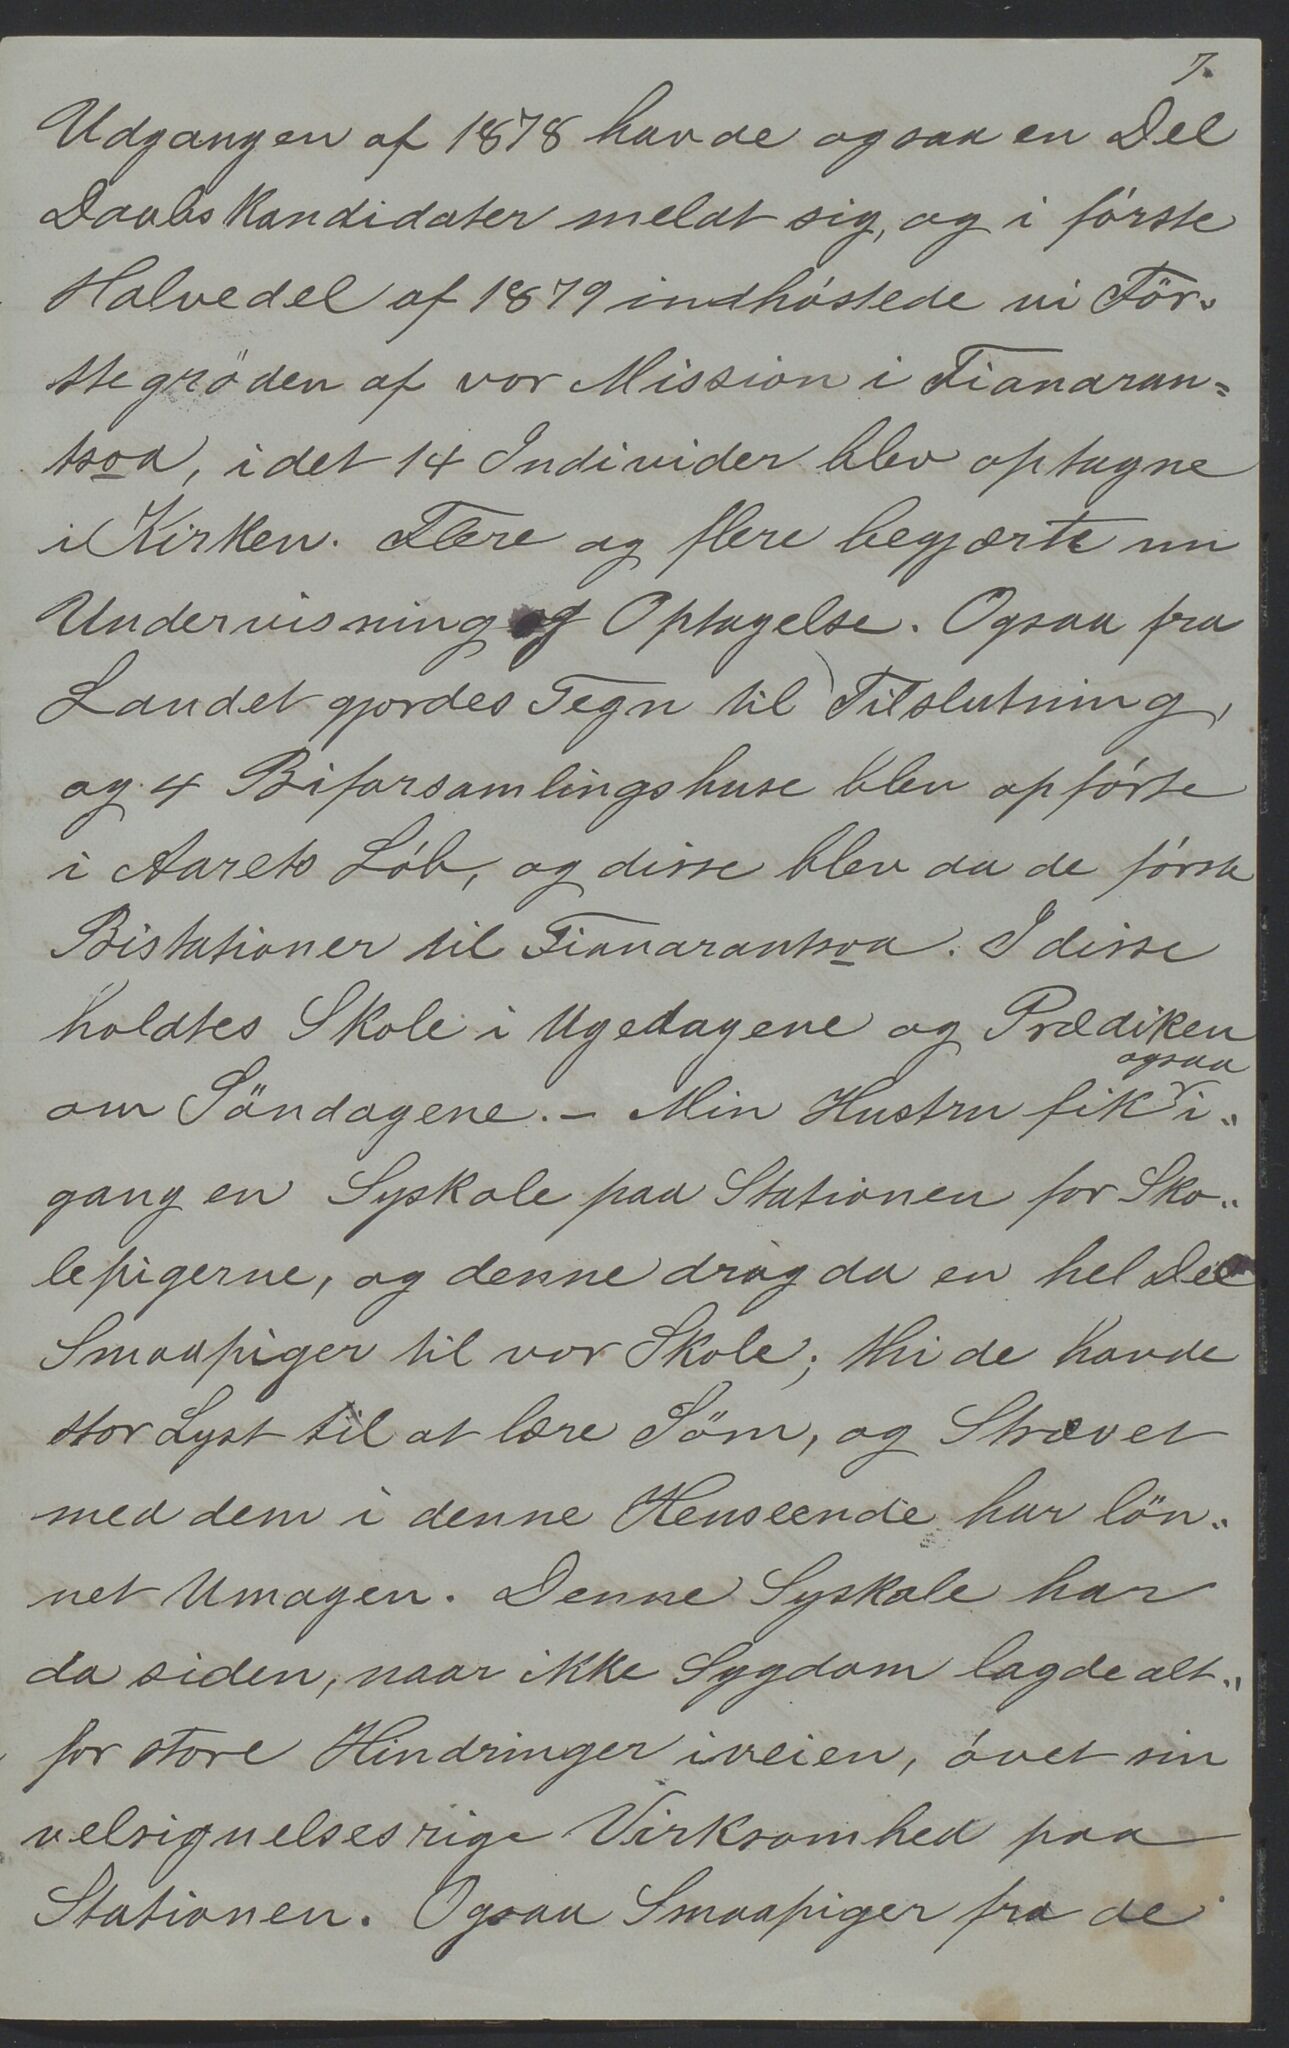 7.
Udgangen af 1878 havde ogsaa en Del
Daabskandidater meldt sig, og i første
Halvedel af 1879 indhøstede vi För-
stegröden af vor Mission i Fianaran=
tsoa, idet 14 Individer blev optagne
i Kirken. Flere og flere begjærte nu
Undervisning og Optagelse. Ogsaa fra
Landet gjordes Tegn til Tilslutning,
og 4 Biforsamlingshuse blev opførte
i Aarets Løb, og disse blev da de første
Bistationer til Fianarantsoa. I disse
holdtes Skole i Ugedagene og Prædiken
ogsaa
om Söndagene. – Min Hustru fik i„
gang en Syskole paa Stationen for Sko„
lepigerne, og denne drog da en hel Del
Smaapiger til vor Skole; thi de havde
stor Lyst til at lære Söm, og Strævet
med dem i denne Henseende har lön„
net Umagen. Denne Syskole har
da siden, naar ikke Sygdom lagde alt„
for store Hindringer iveien, øvet sin
velsignelsesrige Virksomhed paa
Stationen. Ogsaa Smaapiger fra de